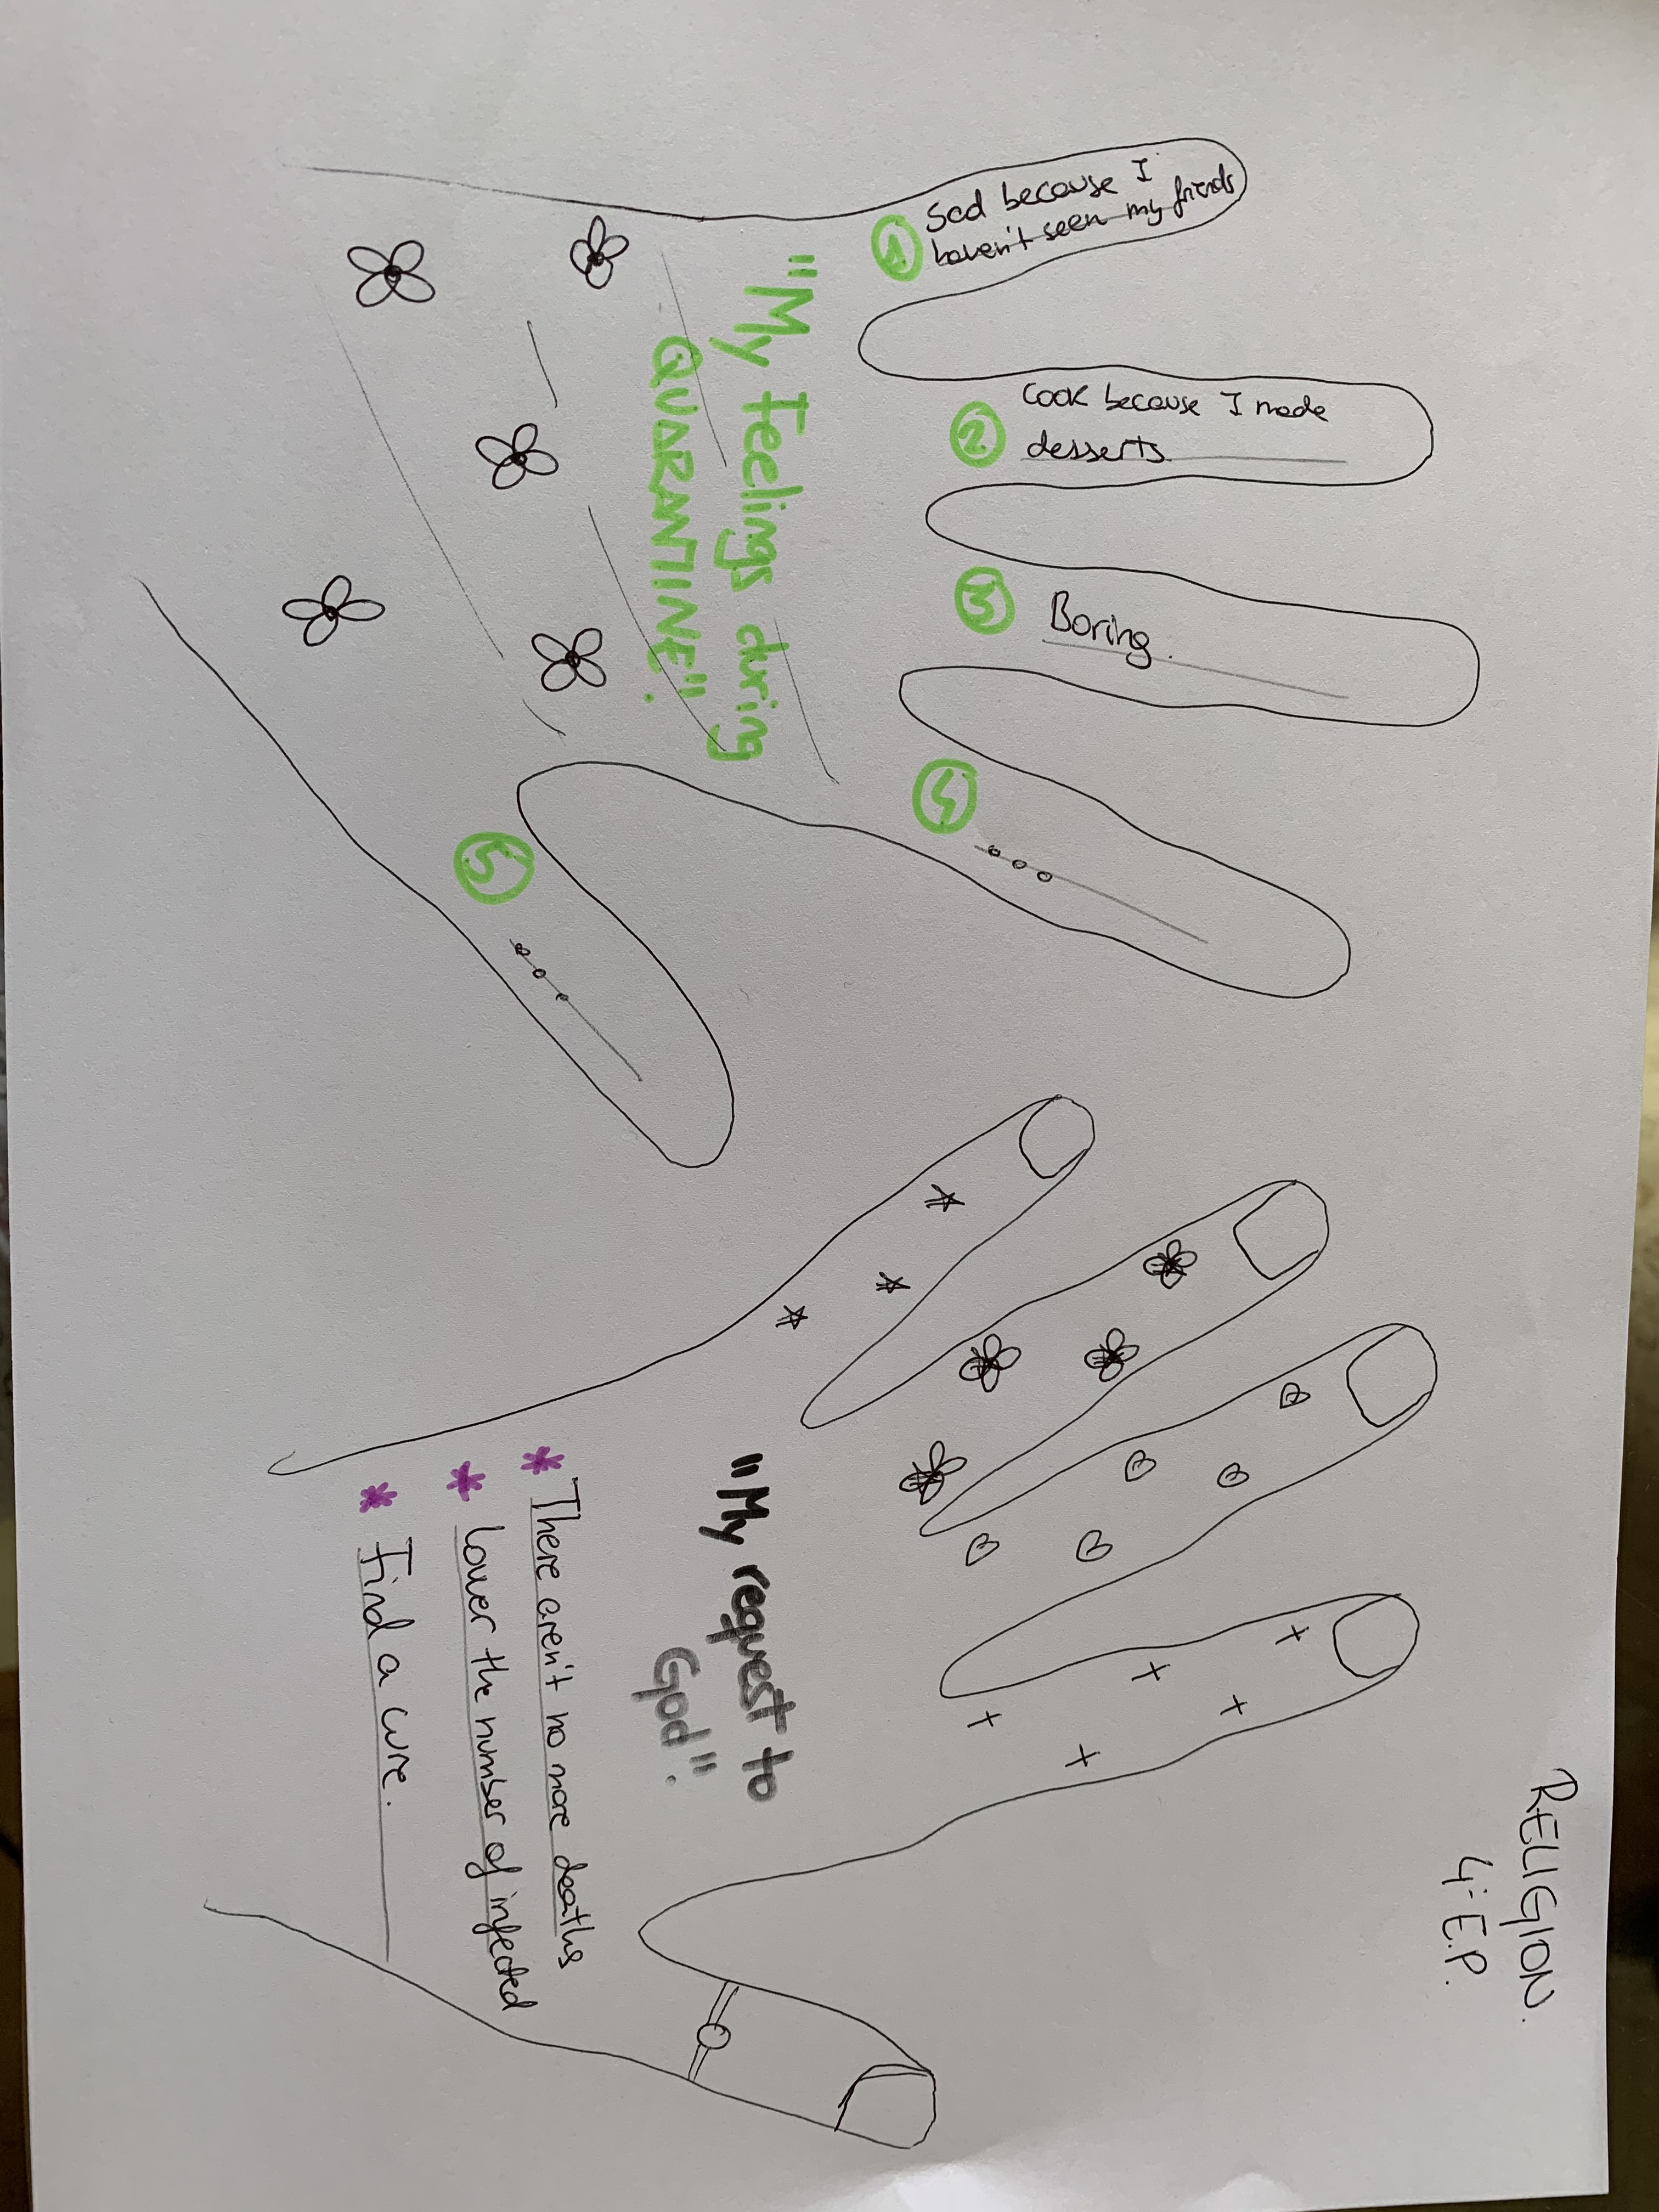 RELIGION.
4º E.P.
"My Feelings during
QUARANTINE".
1
Sad because I
haven't seen my friends
2
Cook because I made
desserts.
3
Boring.
4
...
5
...
"My request to
God".
* There aren't no more deaths
* Lower the number of infected
* Find a cure.